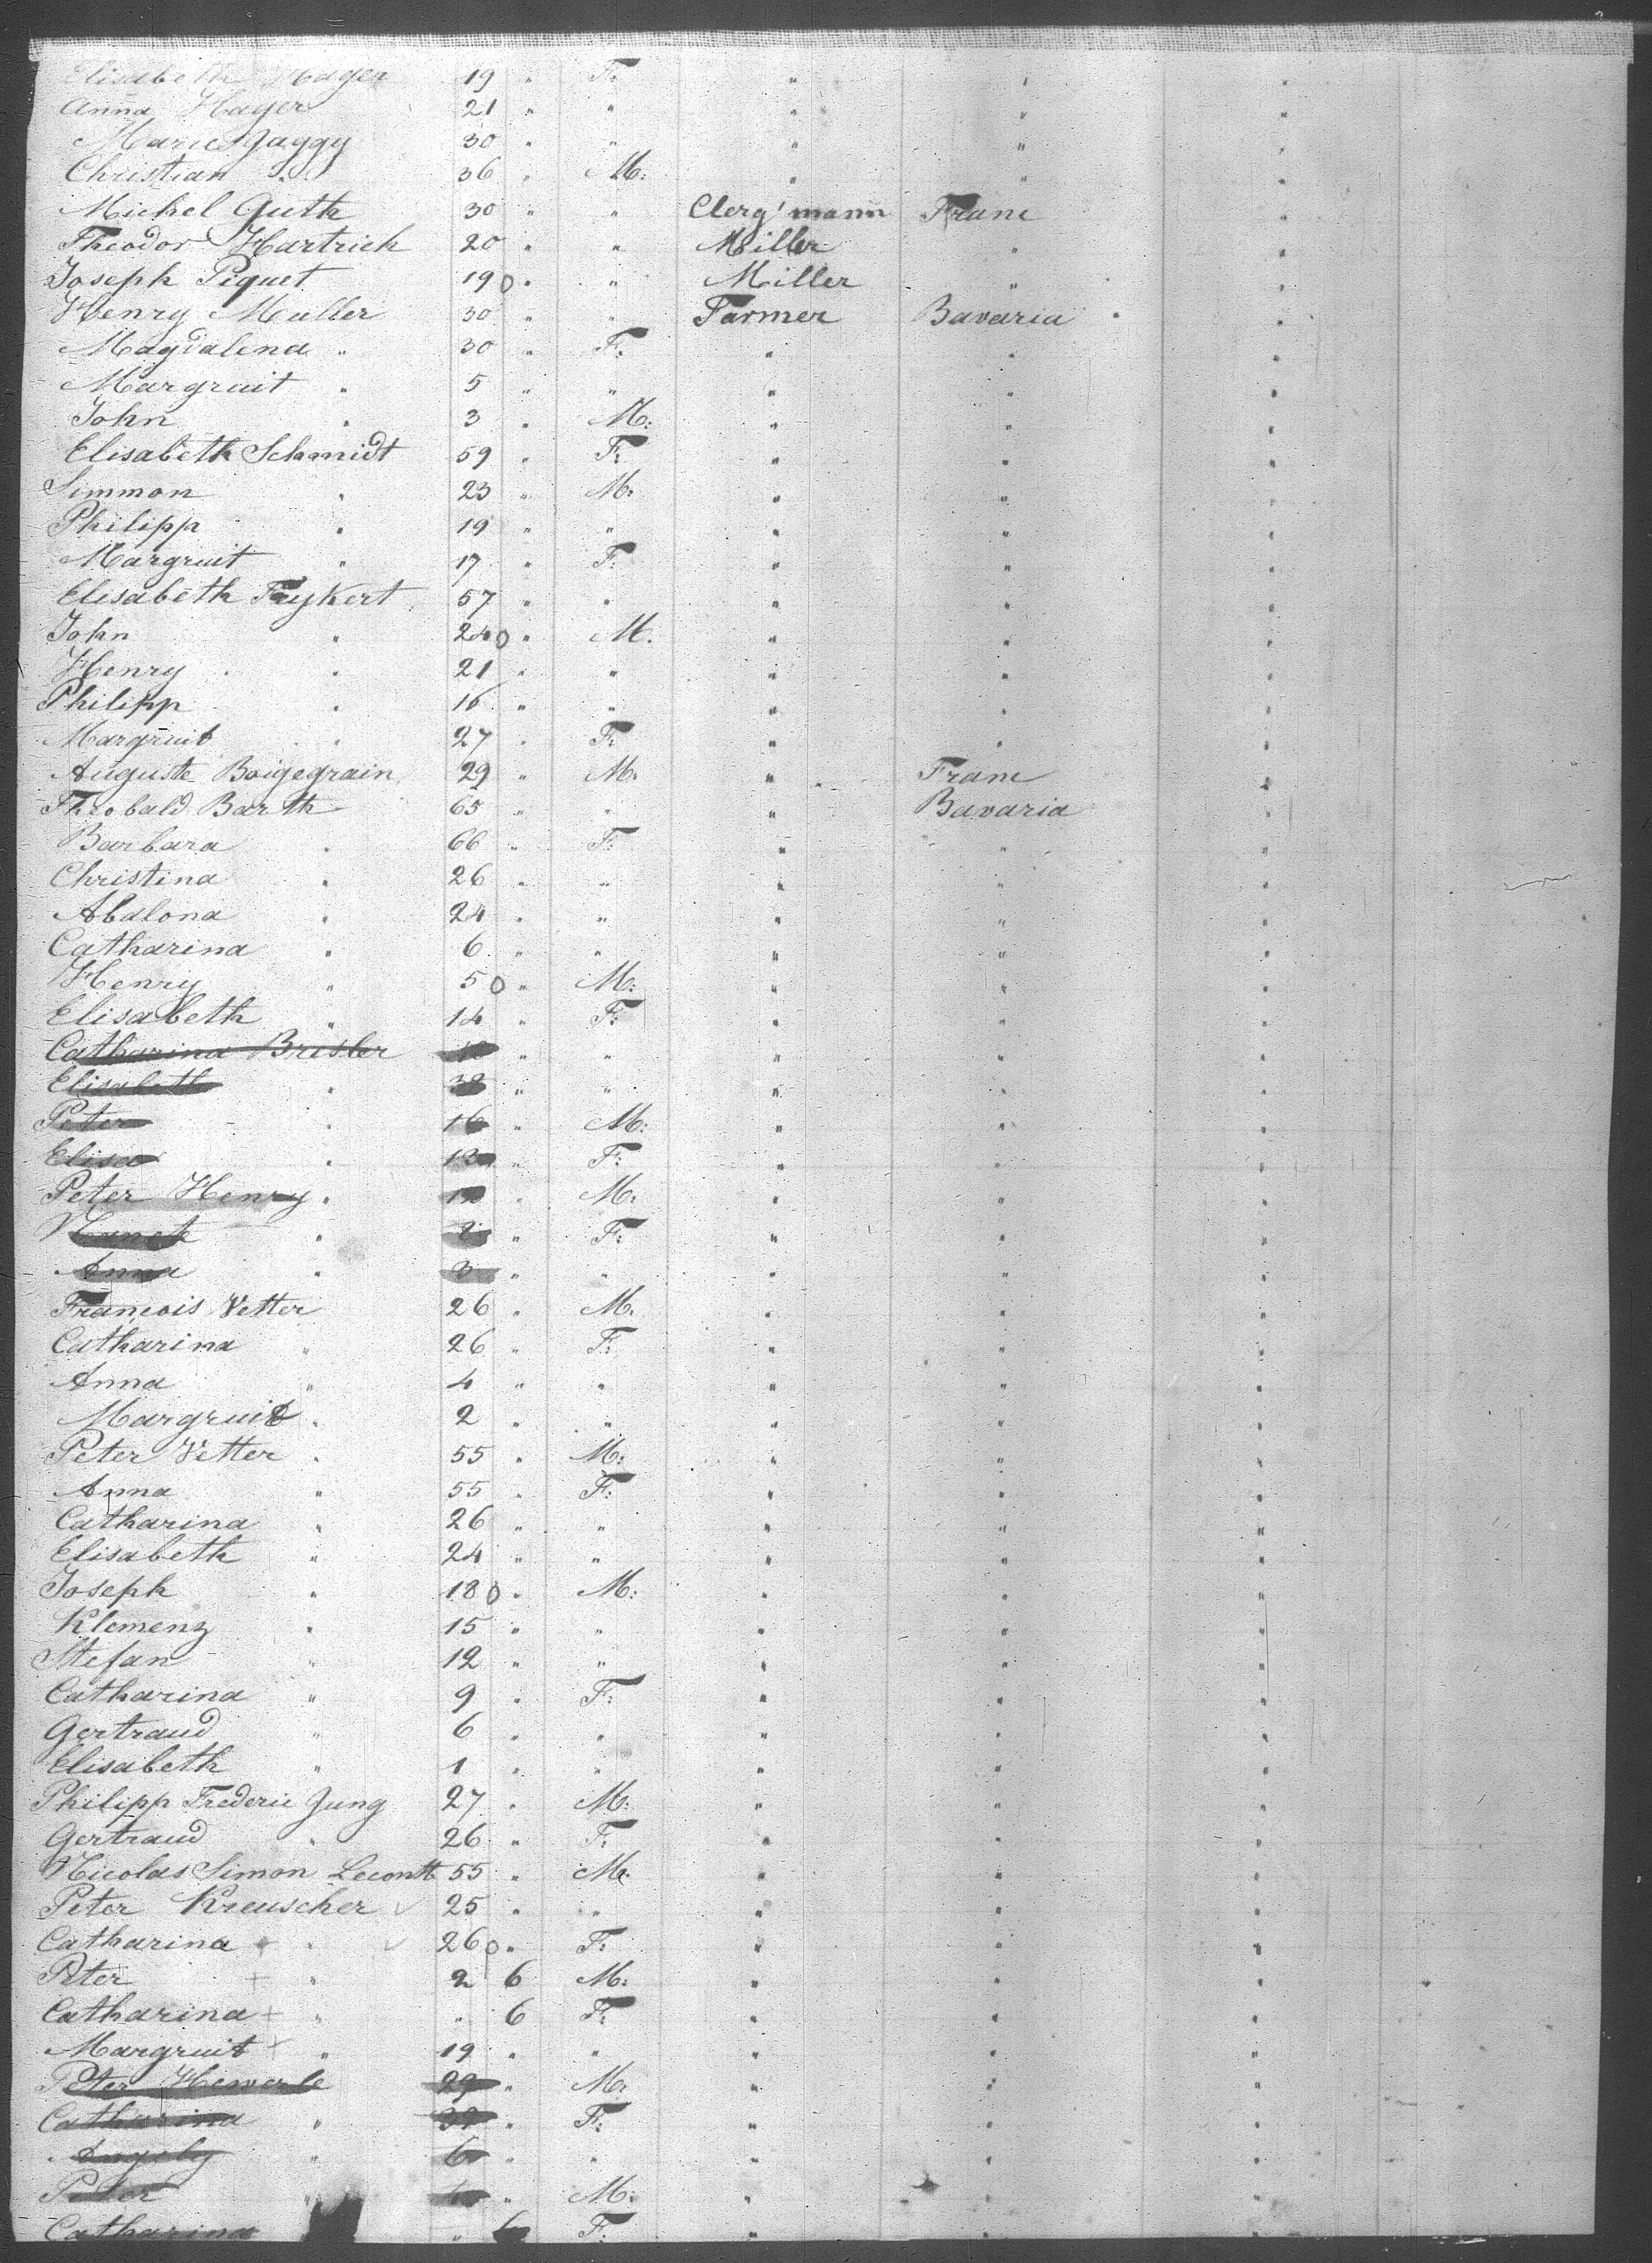 Elisabeth Hager 19 " F: " " "
Anna Hager 21 " " " " "
Marie Jaggy 30 " " " " "
Christian " 36 " M: " " "
Michel Guth 30 " " Clerg'mann Franc "
Theodor Hartrich 20 " " Miller " "
Joseph Piquet 19 0 " " Miller " "
Henry Muller 30 " " Farmer Bavaria "
Magdalena " 30 " F: " " "
Margruit " 5 " " " " "
John " 3 " M: " " "
Elisabeth Schmidt 59 " F: " " "
Simmon " 23 " M: " " "
Philipp " 19 " " " " "
Margruit " 17 " F: " " "
Elisabeth Feykert 57 " " " " "
John " 24 0 " M. " " "
Henry " 21 " " " " "
Philipp " 16 " " " " "
Margruit " 27 " F: " " "
Auguste Boigegrain 29 " M. " Franc "
Theobald Barth 65 " " " Bavaria "
Barbara " 66 " F: " " "
Christina " 26 " " " " "
Abalona " 24 " " " " "
Catharina " 6 " " " " "
Henry " 5 0 " M: " " "
Elisabeth " 14 " F: " " "
Catharina Brisler " " " " "
Elisabeth " 38 " " " " "
Peter " 16 " M: " " "
Elisa " 13 " F: " " "
Peter Henry " 12 " M. " " "
" " F: " " "
Anna " 3 " " " " "
Francois Vetter 26 " M. " " "
Catharina " 26 " F: " " "
Anna " 4 " " " " "
Margruit " 2 " " " " "
Peter Vetter " 55 " M: " " "
Anna " 55 " F: " " "
Catharina " 26 " " " " "
Elisabeth " 24 " " " " "
Joseph " 18 0 " M: " " "
Klemenz " 15 " " " " "
Stefan " 12 " " " " "
Catharina " 9 " F: " " "
Gertraud " 6 " " " " "
Elisabeth " 1 " " " " "
Philipp Frederic Jung 27 " M: " " "
Gertraud " 26 " F: " " "
Nicolas Simon Lecontt 55 " M: " " "
Peter Kreuscher 25 " " " " "
Catharina + " 26 0 " F: " " "
Peter + " 2 6 M: " " "
Catharina + " " 6 F: " " "
Margruit + " 19 " " " " "
Peter Hewerle 29 " M: " " "
Catharina " " F: " " "
Angely " 6 " " " " "
Peter " " M: " " "
Catharina " 6 F: " " "